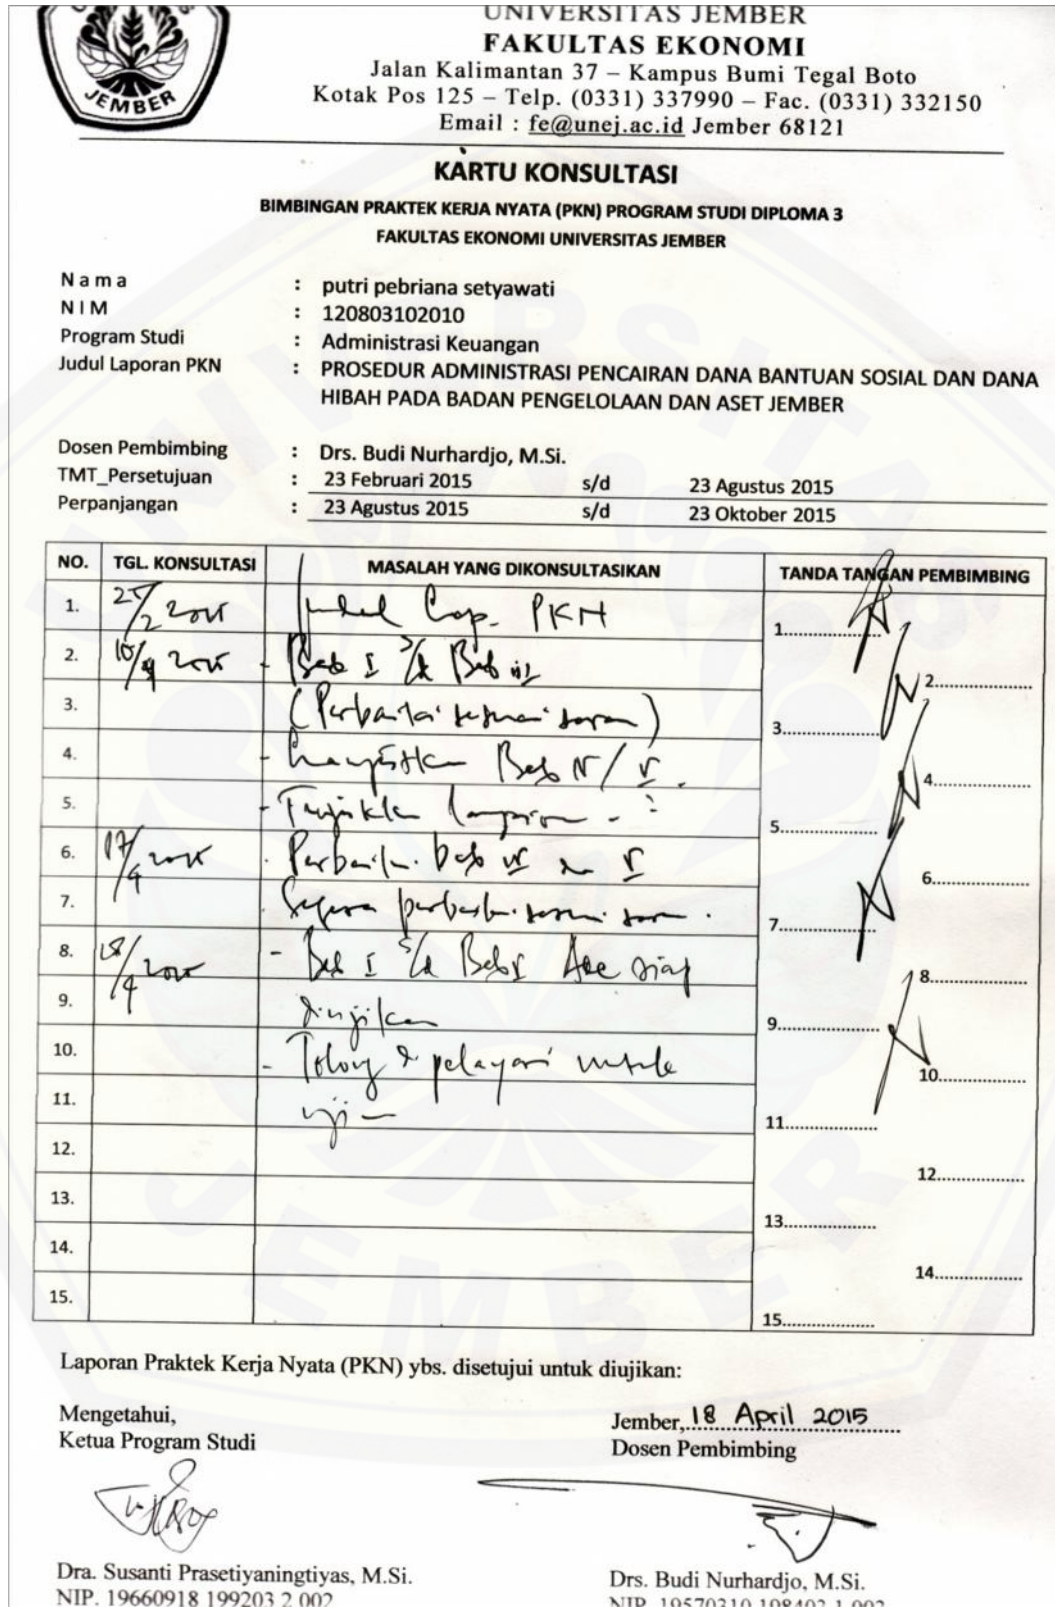 UNIVERSITAS JEMBER
FAKULTAS EKONOMI
Jalan Kalimantan 37 – Kampus Bumi Tegal Boto
Kotak Pos 125 – Telp. (0331) 337990 – Fac. (0331) 332150
Email : fe@unej.ac.id Jember 68121
JEMBER
KARTU KONSULTASI
BIMBINGAN PRAKTEK KERJA NYATA (PKN) PROGRAM STUDI DIPLOMA 3
FAKULTAS EKONOMI UNIVERSITAS JEMBER
N a m a : putri pebriana setyawati
N I M : 120803102010
Program Studi : Administrasi Keuangan
Judul Laporan PKN : PROSEDUR ADMINISTRASI PENCAIRAN DANA BANTUAN SOSIAL DAN DANA
HIBAH PADA BADAN PENGELOLAAN DAN ASET JEMBER
Dosen Pembimbing : Drs. Budi Nurhardjo, M.Si.
TMT_Persetujuan : 23 Februari 2015 s/d 23 Agustus 2015
Perpanjangan : 23 Agustus 2015 s/d 23 Oktober 2015
NO. TGL. KONSULTASI MASALAH YANG DIKONSULTASIKAN TANDA TANGAN PEMBIMBING
1. 25/2 2015 Judul Lap. PKN 1.
2. 2015 - Bab I s/d Bab III 2.
3. (Perbaiki sesuai saran) 3.
4. - Lanjutkan Bab IV/V. 4.
5. - lampiran 5.
6. 17/4 2015 - Perbaiki bab IV V 6.
7. Segera perbaiki sesuai saran. 7.
8. 18/4 2015 - Bab I s/d Bab V Acc siap 8.
9. diujikan 9.
10. - Tolong untuk 10.
11. uji 11.
12. 12.
13. 13.
14. 14.
15. 15.
Laporan Praktek Kerja Nyata (PKN) ybs. disetujui untuk diujikan:
Mengetahui,
Ketua Program Studi
Jember, 18 April 2015
Dosen Pembimbing
Dra. Susanti Prasetiyaningtiyas, M.Si.
NIP. 19660918 199203 2 002
Drs. Budi Nurhardjo, M.Si.
NIP. 19570310 198403 1 002
UNIVERSITAS JEMBER